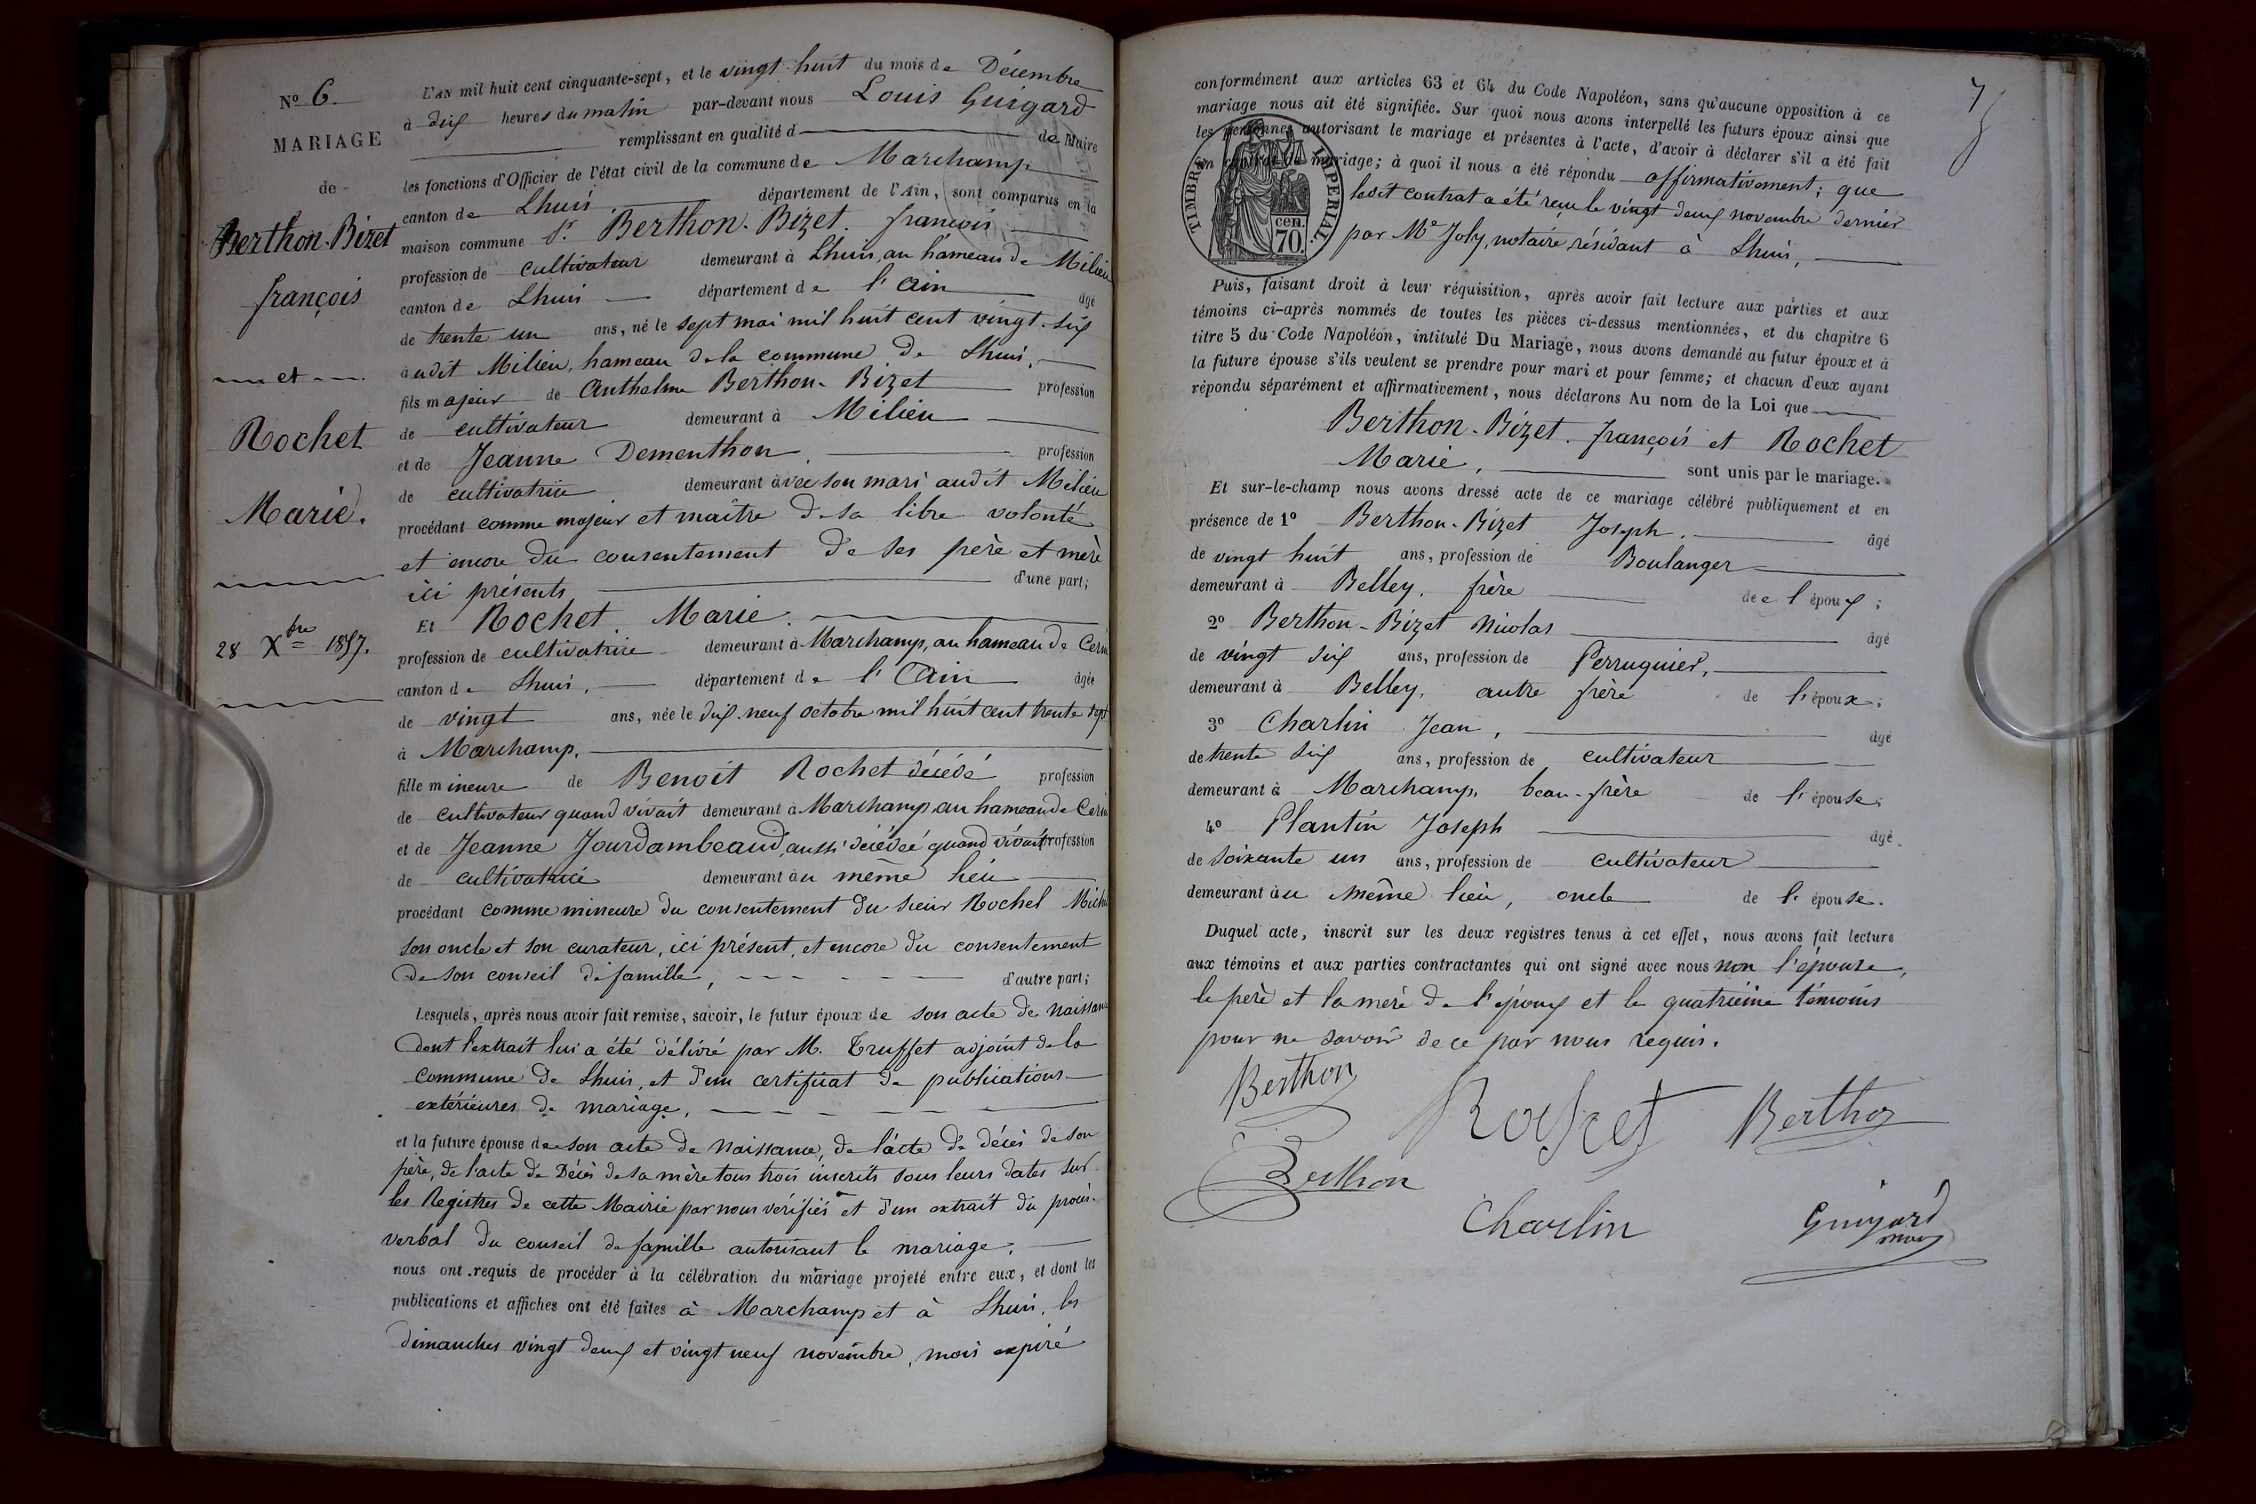 N° 6.
MARIAGE
de
Berthon-Bizet
françois
et
Rochet
Marie.
28 Xbre 1857.
L'AN mil huit cent cinquante-sept, et le vingt-huit du mois de Décembre
à dix heures du matin par-devant nous Louis Guigard
remplissant en qualité d de Maire
les fonctions d'Officier de l'état civil de la commune de Marchamp
canton de Lhuis département de l'Ain, sont comparus en la
maison commune Sr. Berthon-Bizet. françois
profession de cultivateur demeurant à Lhuis, au hameau de Milieu
canton de Lhuis département de l'Ain âgé
de trente un ans, né le sept mai mil huit cent vingt-six
audit Milieu, hameau de la commune de Lhuis,
fils majeur de Anthelme Berthon-Bizet profession
de cultivateur demeurant à Milieu
et de Jeanne Dementhon, profession
de cultivatrice demeurant avec son mari audit Milieu
procédant comme majeur et maître de sa libre volonté
et encore du consentement de ses père et mère
ici présents d'une part;
Et Rochet. Marie.
profession de cultivatrice demeurant à Marchamp, au hameau de Cerin
canton de Lhuis, département de l'Ain âgée
de vingt ans, née le dix-neuf octobre mil huit cent trente sept
à Marchamp,
fille mineure de Benoit Rochet décédé profession
de cultivateur quand vivait demeurant à Marchamp, au hameau de Cerin
et de Jeanne Jourdambeaud, aussi décédée quand vivait profession
de cultivatrice demeurant au même lieu
procédant comme mineure du consentement du sieur Rochet Michel
son oncle et son curateur, ici présent, et encore du consentement
de son conseil de famille, d'autre part;
Lesquels, après nous avoir fait remise, savoir, le futur époux de son acte de naissance
dont l'extrait lui a été délivré par M. Truffet adjoint de la
commune de Lhuis, et d'un certificat de publications
extérieures de mariage,
et la future épouse de son acte de naissance, de l'acte de décès de son
père, de l'acte de Décès de sa mère tous trois inscrits sous leurs dates sur
les Registres de cette Mairie par nous vérifiés et d'un extrait du procès-
verbal du conseil de famille autorisant le mariage,
nous ont requis de procéder à la célébration du mariage projeté entre eux, et dont les
publications et affiches ont été faites à Marchamp et à Lhuis, les
dimanches vingt deux et vingt neuf novembre, mois expiré
7
conformément aux articles 63 et 64 du Code Napoléon, sans qu'aucune opposition à ce
mariage nous ait été signifiée. Sur quoi nous avons interpellé les futurs époux ainsi que
les personnes autorisant le mariage et présentes à l'acte, d'avoir à déclarer s'il a été fait
un contrat de mariage; à quoi il nous a été répondu affirmativement; que
ledit contrat a été reçu le vingt deux novembre dernier
par Me Joly, notaire, résidant à Lhuis,
TIMBRE IMPERIAL.
cen.
70.
Puis, faisant droit à leur réquisition, après avoir fait lecture aux parties et aux
témoins ci-après nommés de toutes les pièces ci-dessus mentionnées, et du chapitre 6
titre 5 du Code Napoléon, intitulé Du Mariage, nous avons demandé au futur époux et à
la future épouse s'ils veulent se prendre pour mari et pour femme; et chacun d'eux ayant
répondu séparément et affirmativement, nous déclarons Au nom de la Loi que
Berthon-Bizet. françois et Rochet
Marie, sont unis par le mariage.
Et sur-le-champ nous avons dressé acte de ce mariage célébré publiquement et en
présence de 1° Berthon-Bizet Joseph. âgé
de vingt huit ans, profession de Boulanger
demeurant à Belley. frère de l'époux;
2° Berthon-Bizet Nicolas âgé
de vingt six ans, profession de Perruquier,
demeurant à Belley, autre frère de l'époux;
3° Charlin Jean, âgé
de trente six ans, profession de cultivateur
demeurant à Marchamp, beau-frère de l'épouse;
4° Plantin Joseph âgé
de soixante un ans, profession de cultivateur
demeurant au même lieu, oncle de l'épouse.
Duquel acte, inscrit sur les deux registres tenus à cet effet, nous avons fait lecture
aux témoins et aux parties contractantes qui ont signé avec nous non l'épouse,
le père et la mère de l'époux et le quatrième témoins
pour ne savoir de ce par nous requis.
Berthon
Rochet
Berthon
Berthon
Charlin
Guigard
maire